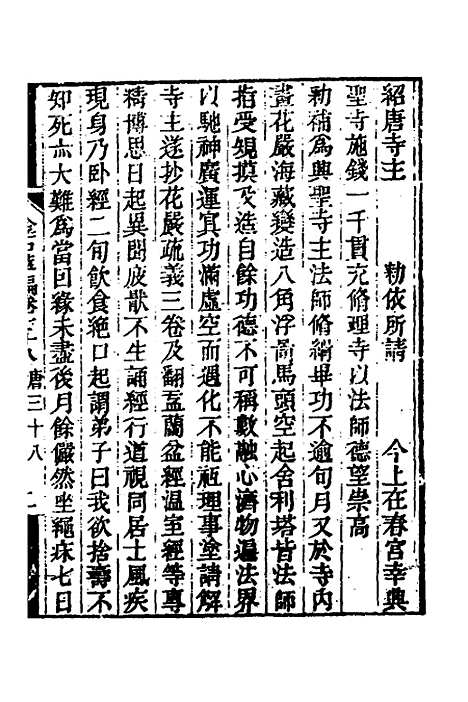 紹唐寺主　　勅依所請　　今上在春宮幸興
聖寺施錢一千貫充脩理寺以法師德望崇高
勅補爲興聖寺主法師脩緝畢功不逾旬月又於寺内
畫花嚴海藏變造八角浮啚馬頭空起舍利塔皆法師
指受規摸及造自餘功德不可稱數融心濟物遍法界
以馳神廣運冥功滿虛空而遇化不能祗理事塗請解
寺主遂抄花嚴疏義三卷及翻盂蘭盆經溫室經等專
精博思日起異聞疲猒不生誦經行道視同居士風疾
現身乃卧經二旬飲食絶口起謂弟子曰我欲捨壽不
知死亦大難爲當回緣未盡後月餘儼然坐繩床七日
金石 編卷七十八　唐三十八